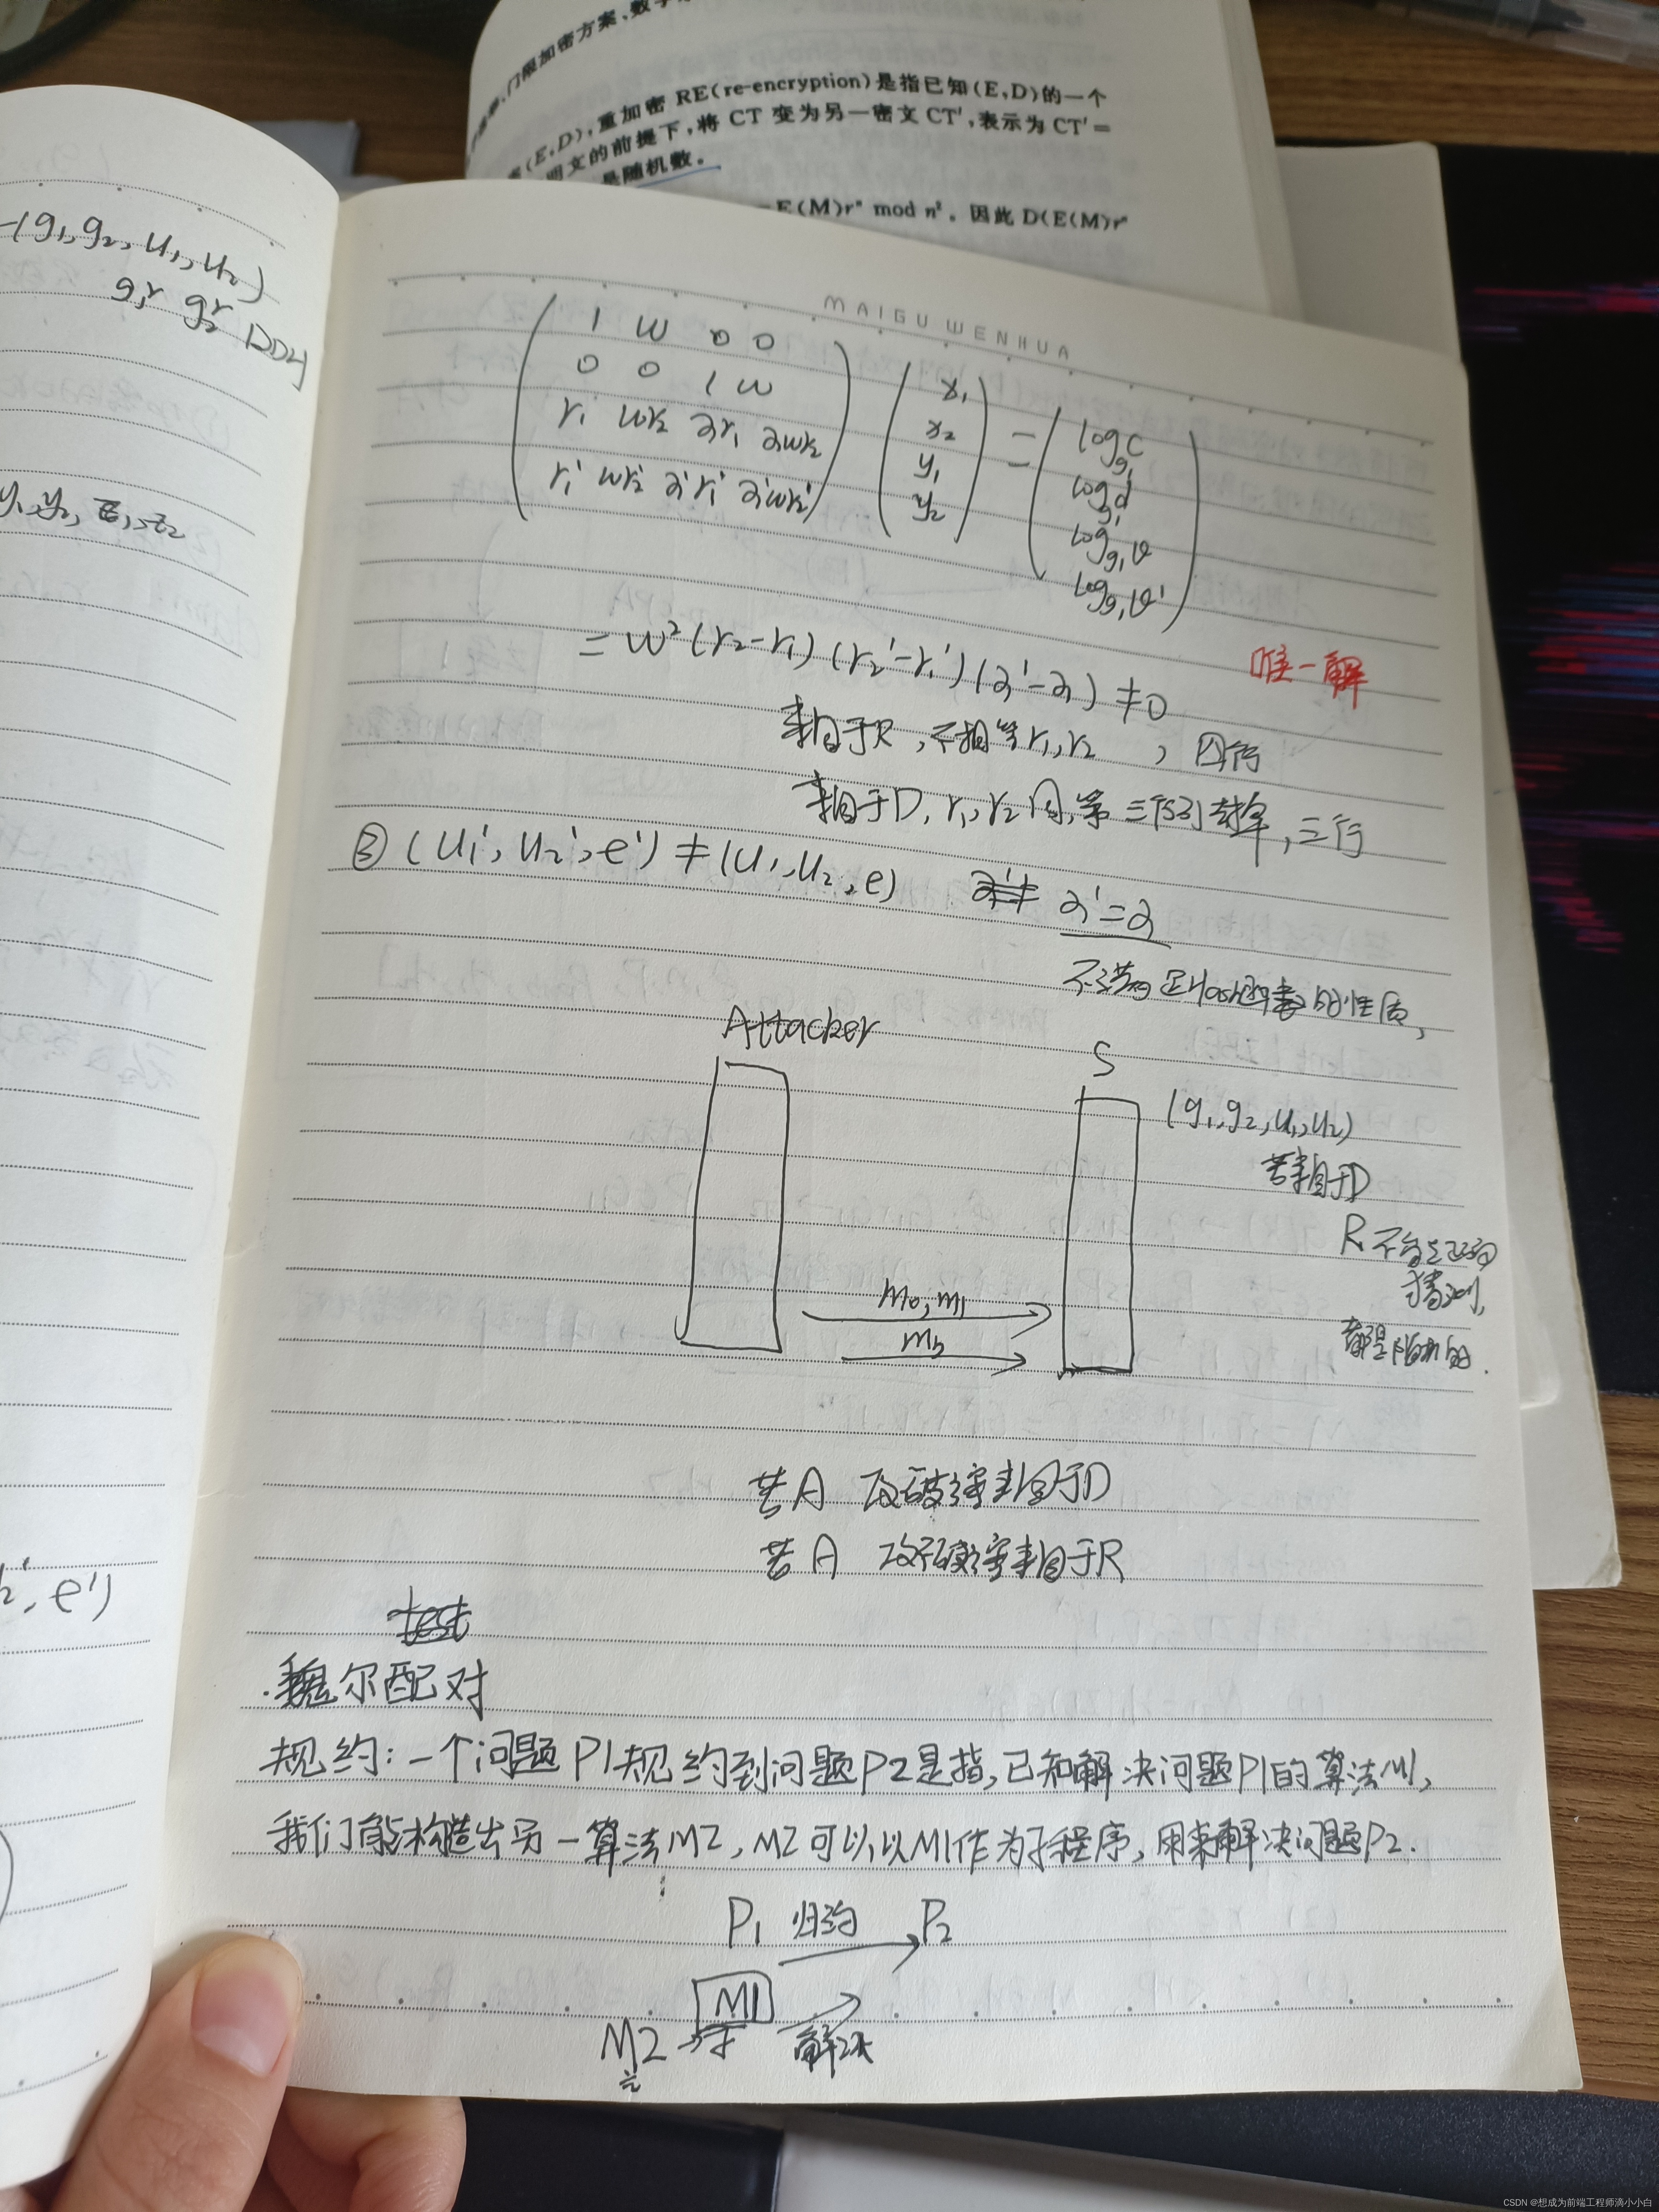 门限加密方案、数字
(E,D),重加密 RE(re-encryption)是指已知(E,D)的一个
明文的前提下,将 CT 变为另一密文 CT′,表示为 CT′=
是随机数。
=E(M)rⁿ mod n²。因此 D(E(M)rⁿ
(g₁,g₂,u₁,u₂)
g₁r g₂r DDH
y₁,y₂,z₁,z₂
₂′,e′)
MAIGU WENHUA
1 w 0 0
0 0 1 w
r₁ wr₂ αr₁ αwr₂
r₁′ wr₂′ α′r₁′ α′wr₂′
x₁
x₂
y₁
y₂
=
log_g₁ c
log_g₁ d
log_g₁ v
log_g₁ v′
=w²(r₂-r₁)(r₂′-r₁′)(α′-α)≠0
唯一解
来自于R,不相等r₁,r₂ ,四行
来自于D,r₁,r₂同,第三行到 ,三行
③(u₁′,u₂′,e′)≠(u₁,u₂,e) α′=α
不满足Hash函数的性质,
Attacker
S
(g₁,g₂,u₁,u₂)
若来自于D
R 不能正确
猜测,
都是随机的.
m₀,m₁
m_b
若A 攻破 来自于D
若A 攻不破 来自于R
test
·魏尔配对
规约:一个问题P1规约到问题P2是指,已知解决问题P1的算法M1,
我们能构造出另一算法M2,M2可以以M1作为子程序,用来解决问题P2.
P₁ 归约 P₂
M1
M2 子 解决
CSDN @想成为前端工程师滴小小白